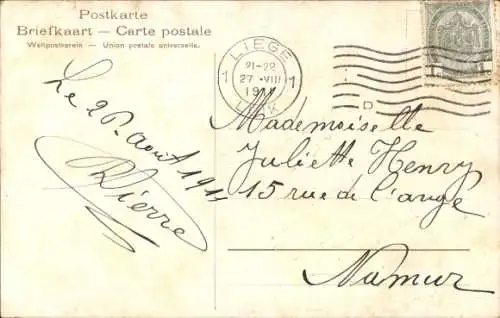 Postkarte
Briefkaart — Carte postale
Weltpostverein — Union postale universelle.
LIEGE
1 21-22 1
27 VIII
LUIK
D
1 1
Le 26 Août 1911
Pierre
Mademoiselle
Juliette Henry
15 rue de l'ange
Namur